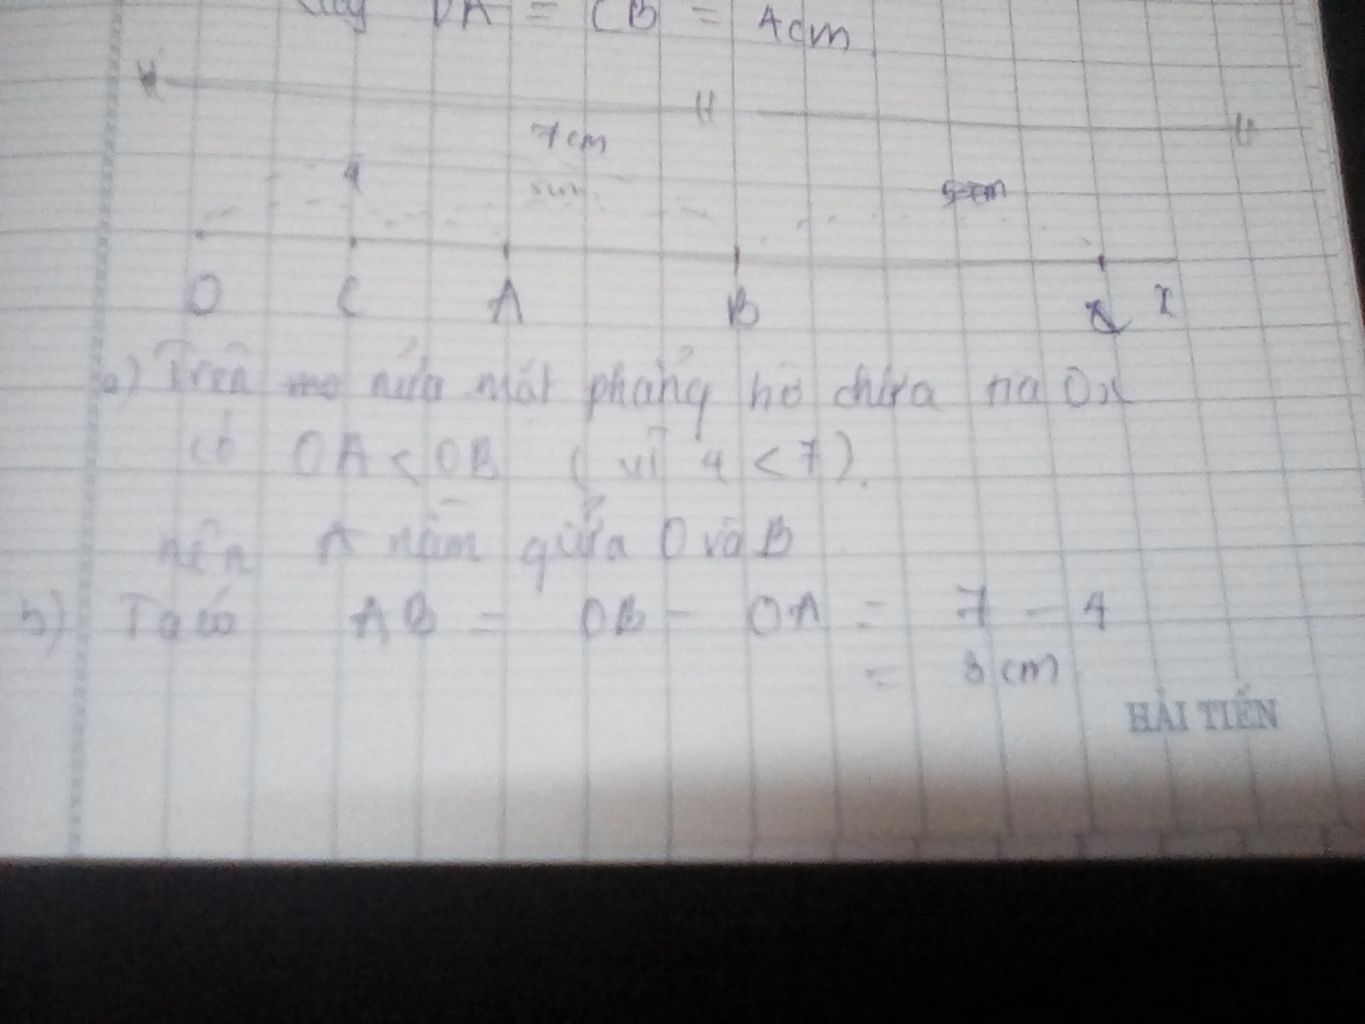 DA = CB = 4cm
7cm
O C A B x
a) Trên nửa mặt phẳng bờ chứa tia Ox
có OA < OB ( vì 4 < 7 ).
nên A nằm giữa O và B
b) Ta có AB = OB - OA = 7 - 4
= 3 cm
HẢI TIẾN